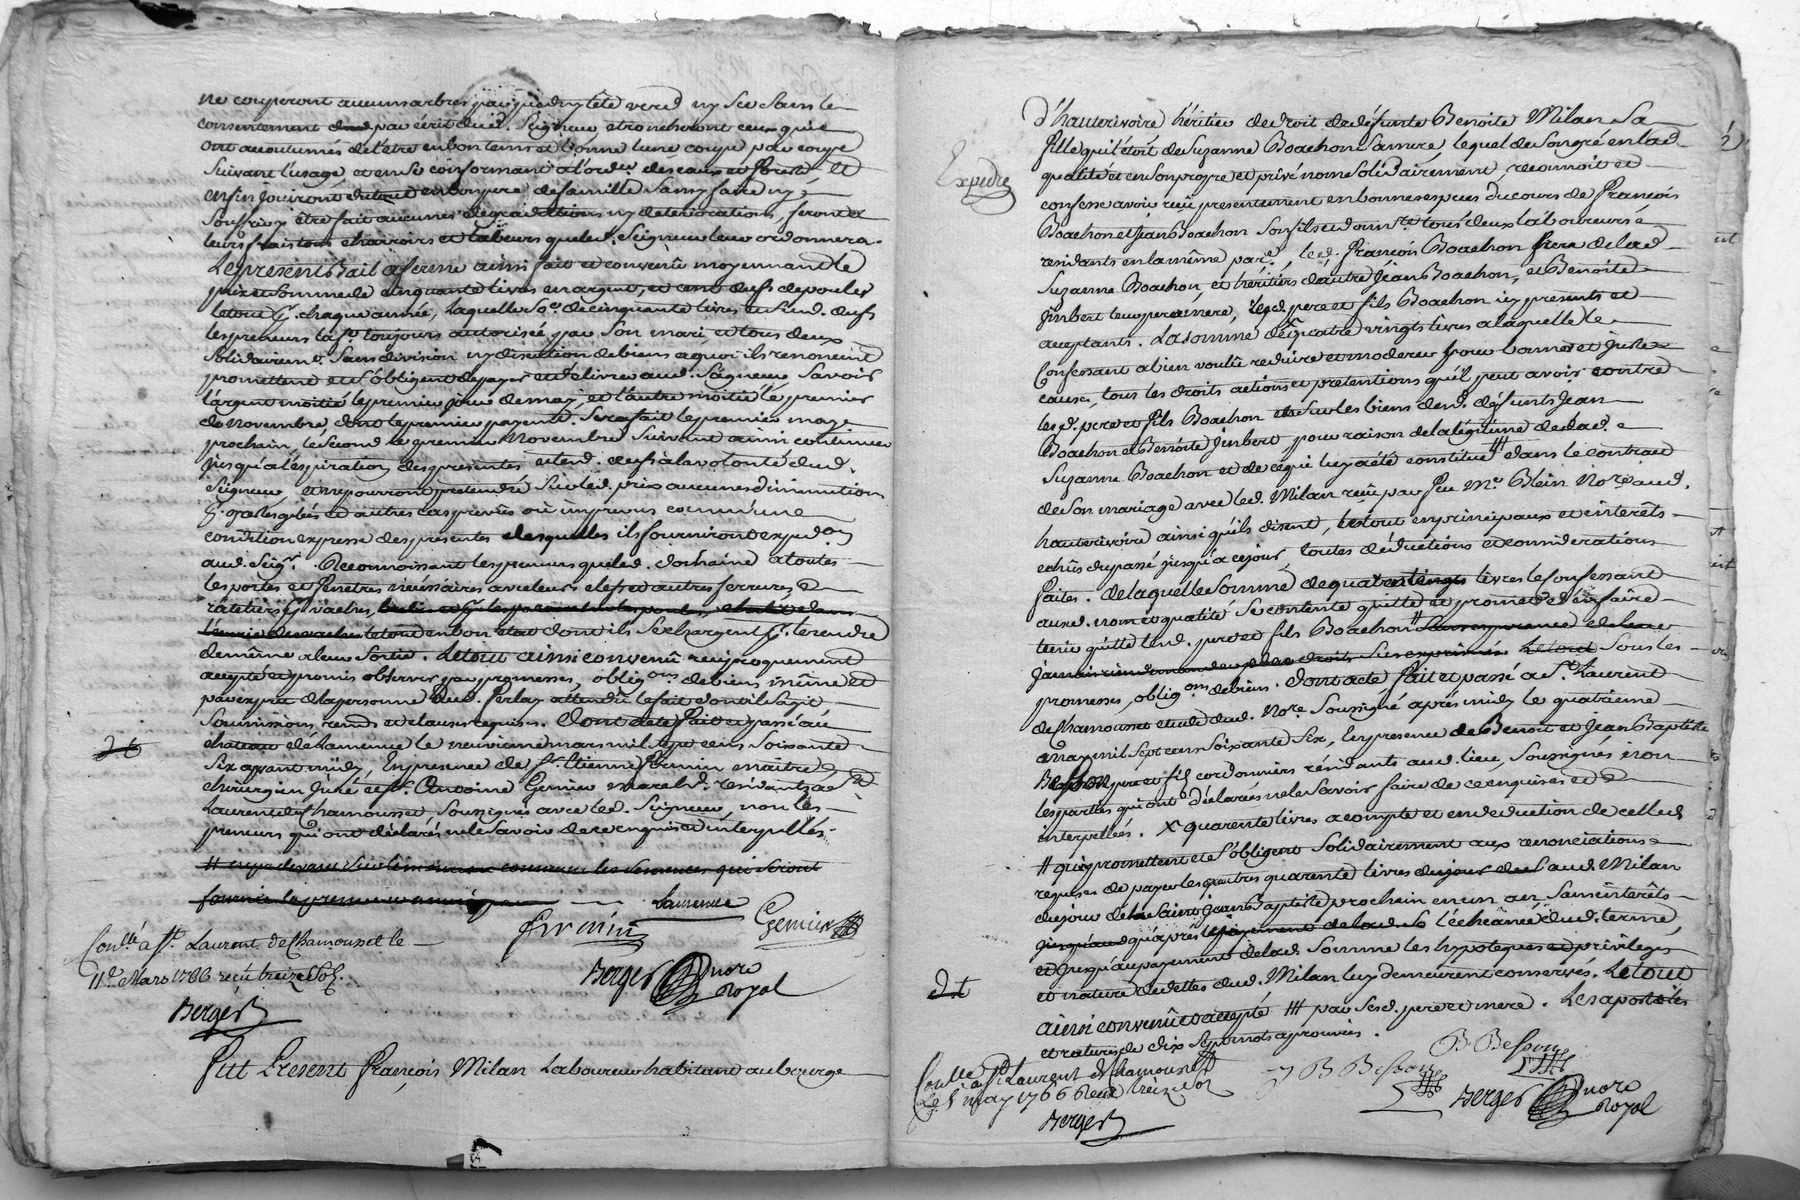 ne couperont aucuns arbres par pied ny tête verd ny sec sans le
consentement par écrit dud. Seigneur etroncheront ceux qui
ont accoutumés de l'être en bon tems et bonne lune coupe par coupe
suivant l'usage et en se conformant a l'ordce des eaux et forests et
enfin jouiront du tout en bon pere de famille sans y faire ny
souffrir y être fait aucunes dégradations ny détériorations, feront a
leurs frais tous charrois et labeurs que led. Seigneur leur ordonnera.
Le present Bail a ferme ainsi fait et convenû moyennant le
prix et somme de cinquante livres en argent, et cent oeufs de poules
le tout chaque année, laquelle so.e de cinquante livres et cend. oeufs
les preneurs lad. toujours autorisée par son mari, et tous deux
solidairemt. sans division ny discution de biens a quoi ils renoncent
promettent et s'obligent de payer et délivrer aud. Seigneur, savoir
l'argent moitié le premier jour de may, et l'autre moitié le premier
de novembre, dont le premier payemt. sera fait le premier may
prochain, le second le premier novembre suivant ainsi continuer
jusqu'a l'expiration des presentes et lesd. oeufs a la volonté dud.
Seigneur, et ne pourront pretendre sur led. prix aucunes diminutions
p. greles gelées et autres cas prevûs ou imprevus comme une
condition expresse des presentes desquelles ils fourniront expedon
aud. Seigr. Reconnoissant les preneurs que led. domaine a toutes
les portes et fenêtres nécéssaires avec leurs clefs et autres ferrures, et
rateliers p. vaches,
le tout en bon etat dont ils se chargent p. le rendre
de même a leur sortie. Le tout ainsi convenû reciproquement
accepté et promis observer par promesses, obligons de biens même et
par exprez de la personne dud. Perlay attendû le fait dont il s'agit
soumissions, renons et clauses requises. Dont acte fait et passé au
chateau de lamenue le neuvieme mars mil sept cens soixante
six avant midy, En presence de sr. Etienne Fermin maître
chirurgien juré et sr. Antoine Genier marchd. residants a st.
Laurent de Chamousset, soussignés avec led. Seigneur, non les
preneurs qui ont déclarés ne le savoir de ce enquis et interpellés.
lamenue
Fermin Genier
Berger nore
Royal
Conllé a st. Laurent de Chamousset le
11e. Mars 1766 recû treize sols.
Berger
Fut Present François Milan Laboureur habitant au bourg
d'hauterivoire héritier de droit de défunte Benoite Milan sa
Expedié
fille qu'il étoit de Suzanne Boachon sa mere, lequel de son gré en lad.
qualité et en son propre et privé nom solidairement, reconnoit et
confesse avoir reçû presentement en bonnes especes du cours de François
Boachon et Jean Boachon son fils et donnre. tous deux laboureurs
residants en la même parse., led. François Boachon frere de lad.
Suzanne Boachon, et héritiers d'autre Jean Boachon, et Benoite
Jmbert leurs pere et mere, lesd. pere et fils Boachon icy presents et
acceptants. La somme de quatre vingts livres a laquelle le
Confessant a bien voulû reduire et moderer pour bonnes et justes
causes, tous les droits actions et pretentions qu'il peut avoir contre
lesd. pere et fils Boachon et sur les biens desd. défunts Jean
Boachon et Benoite Jmbert pour raison de la légitime de lad.
Suzanne Boachon et de ce qui luy a été constitué # dans le contract
de son mariage avec led. Milan reçû par feu Me. Blein Nore. aud.
hauterivoire ainsi qu'ils disent, le tout en principaux et interêts
echûs du passé jusqu'a ce jour, toutes déductions et considerations
faites. de laquelle somme de quatre vingts livres le confessant
aux d. nom et qualité se contente quitte et promet d'en faire
tenir quitte lesd. pere et fils Boachon #
Le tout sous les
promesses, obligons de biens. Dont acte fait et passé a st. Laurent
de chamousset etude dud. Nore. soussigné après midy le quatrieme
may mil sept cens soixante six, En presence de Benoit et Jean Baptiste
Besson pere et fils cordonniers résidants aud. lieu, soussignés non
les parties qui ont déclarés ne le savoir faire de ce enquises et
interpellées. X quarente livres a compte et en deduction de celle d.
# qui promettent et s'obligent solidairement aux renonciations
requises de payer les autres quarente livres aud. Milan
du jour de la saint Jean Baptiste prochain en un an, sans interêts
qu'après l'écheance dud. terme,
et jusqu'au payement de lad. somme les hypoteques et privileges
et nature de dettes dud. Milan luy demeurent conservés. Le tout
ainsi convenû et accepté # par ses d. pere et mere. Les apostiles
et ratures de dix sept mots aprouvées.
B Besson
J B Besson
Berger nore
Royal
Conllé a st Laurent de chamousset
Le 5 may 1766 Reçû treize sols
Berger